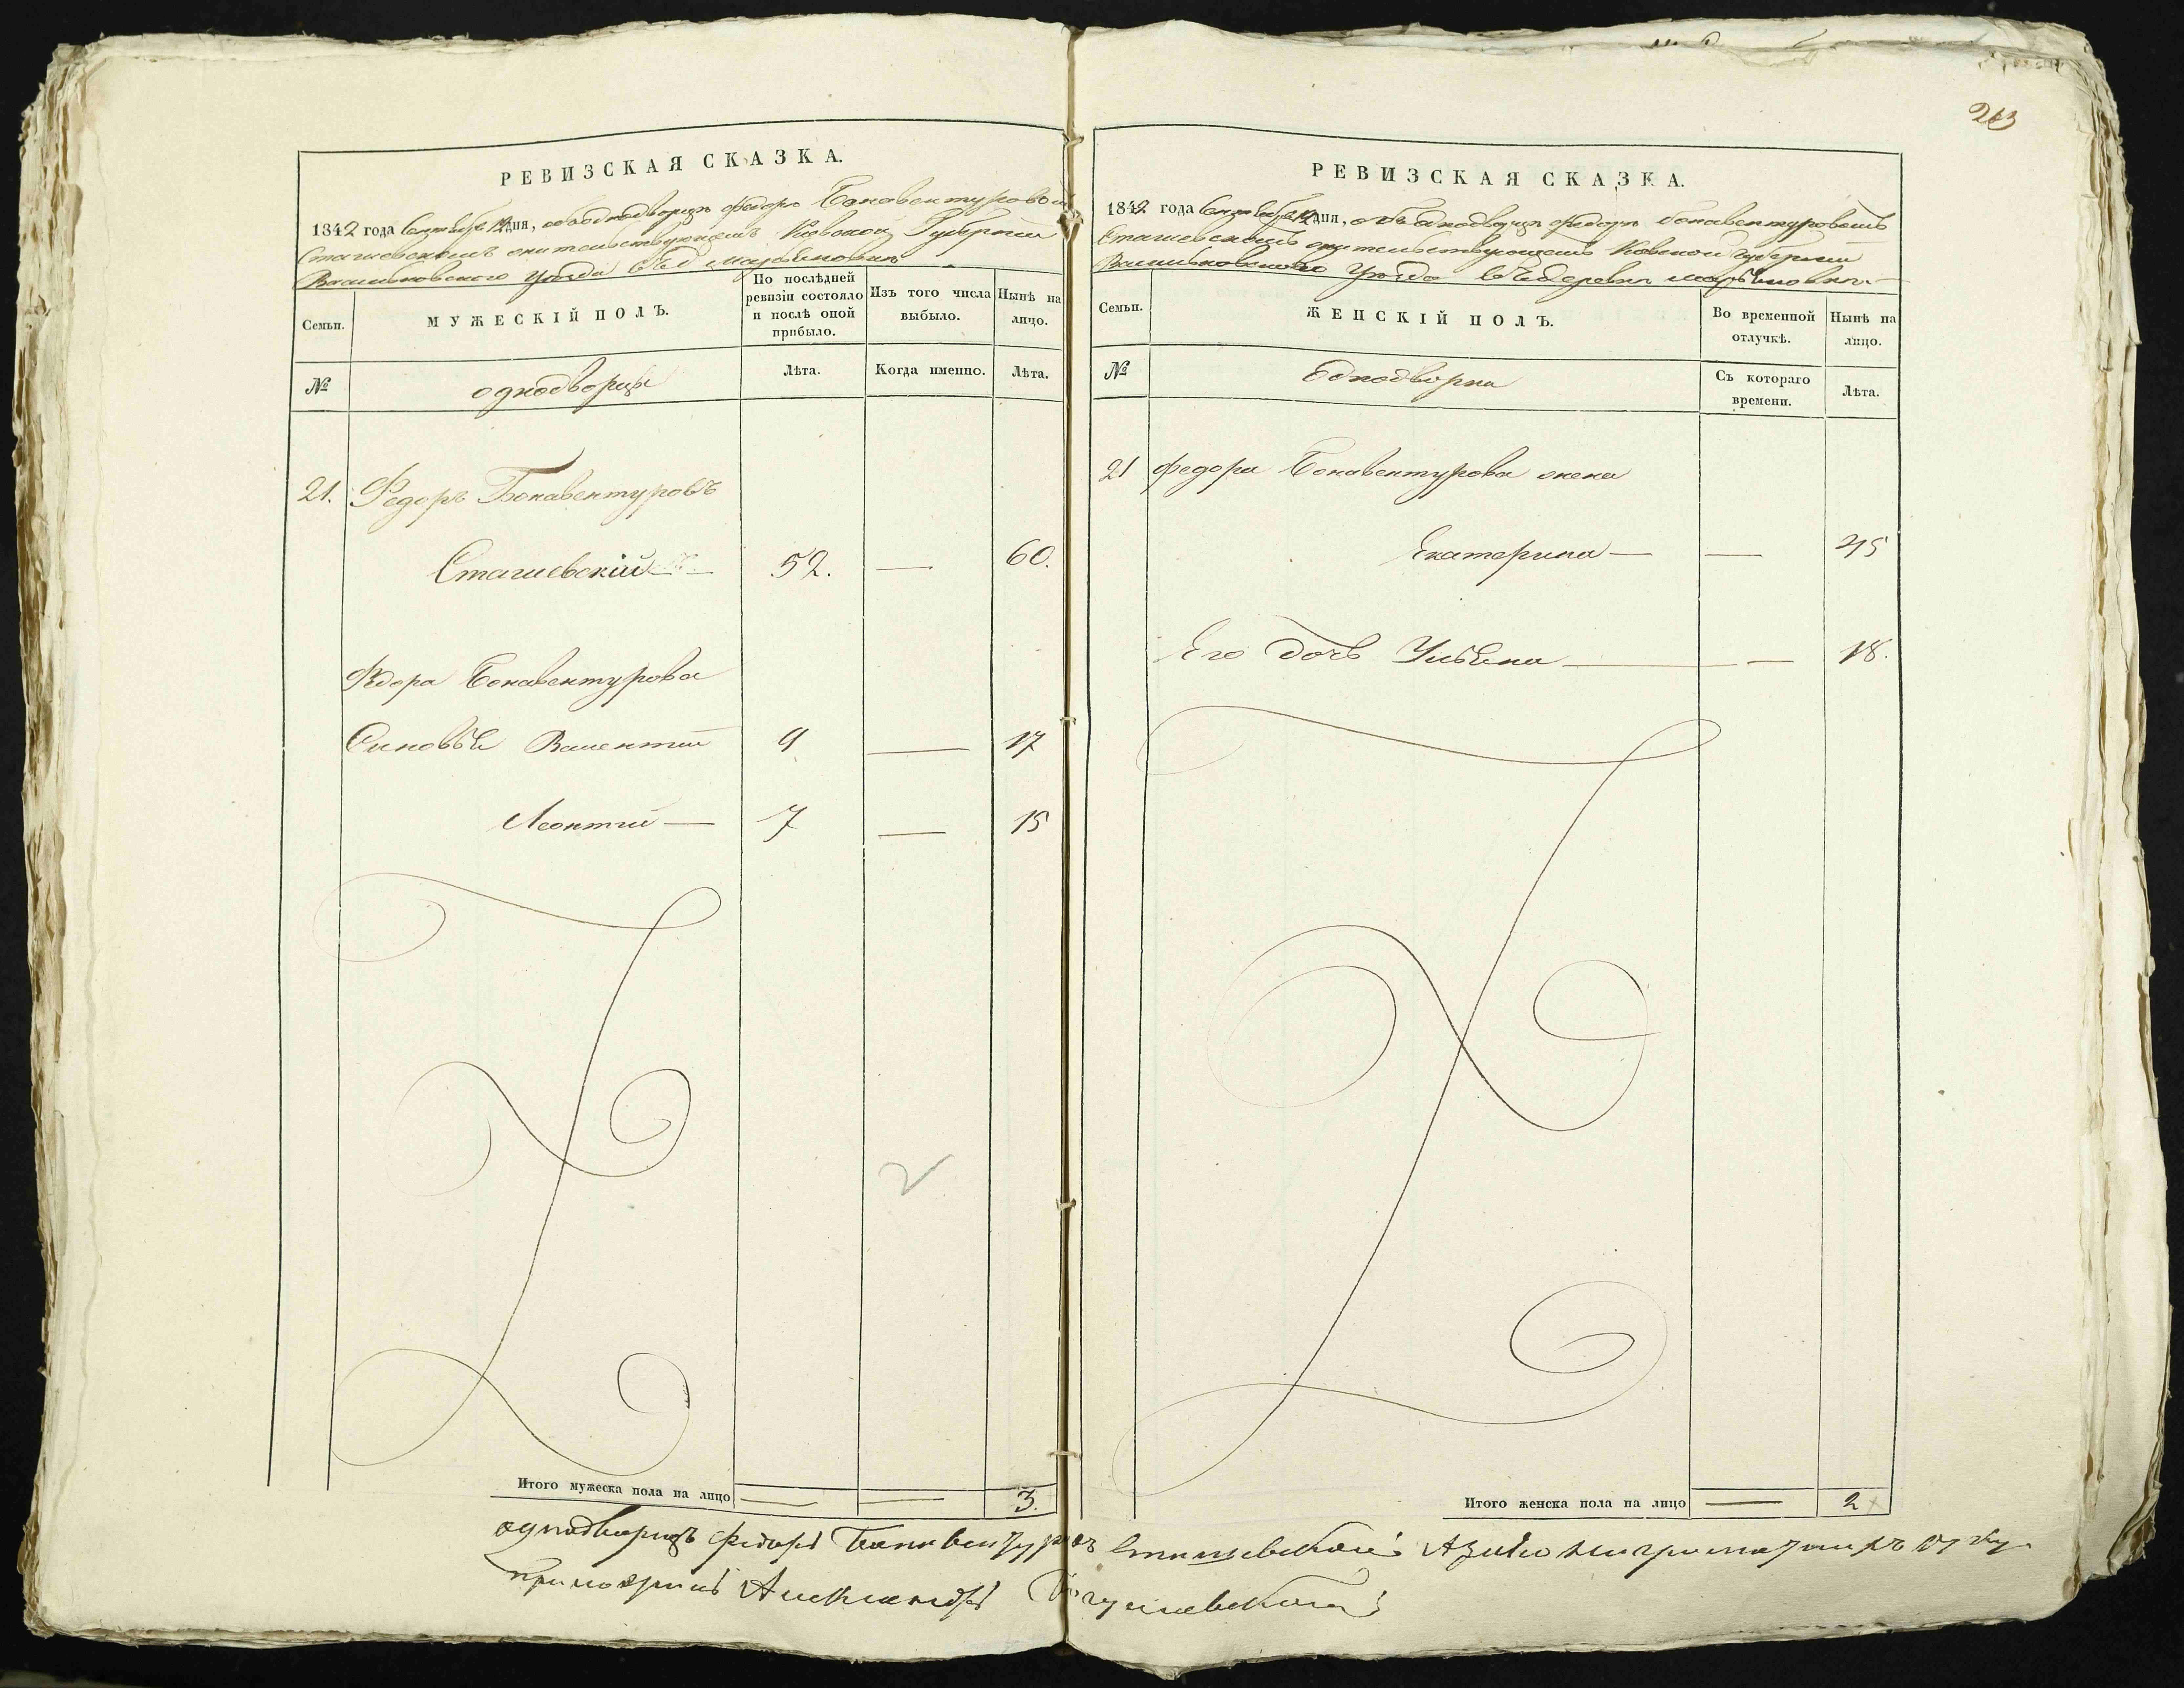 263
РЕВИЗСКАЯ СКАЗКА.
1842 года Сентября 12 дня, объ однодворцѣ Федорѣ Бонавентуровомъ
Сташевскомъ жительствующемъ Кіевской Губерніи
Васильковскаго Уѣзда въ
Семьи.
МУЖЕСКІЙ ПОЛЪ.
По послѣдней ревизіи состояло и послѣ оной прибыло.
Изъ того числа выбыло.
Нынѣ на лицо.
№
однодворцы
Лѣта.
Когда именно.
Лѣта.
21. Федоръ Бонавентуровъ
Сташевскій — 52. — 60.
Федора Бонавентурова
Синовье Валентий 9 — 17
Леонтий — 7 — 15
2
Итого мужеска пола на лицо — — 3.
РЕВИЗСКАЯ СКАЗКА.
1842 года Сентября 12 дня, объ однодворцѣ Федорѣ Бонавентуровомъ
Сташевскомъ жительствующемъ Кіевской Губерніи
Васильковскаго Уѣзда въ деревнѣ
Семьи.
ЖЕНСКІЙ ПОЛЪ.
Во временной отлучкѣ.
Нынѣ на лицо.
№
Однодворки
Съ котораго времени.
Лѣта.
21 Федора Бонавентурова жена
Екатерина — — 45
Его дочь Ульяна — — 18.
Итого женска пола на лицо — 2
однодворецъ Федоръ Бонавентуровъ Сташевской А
Александръ